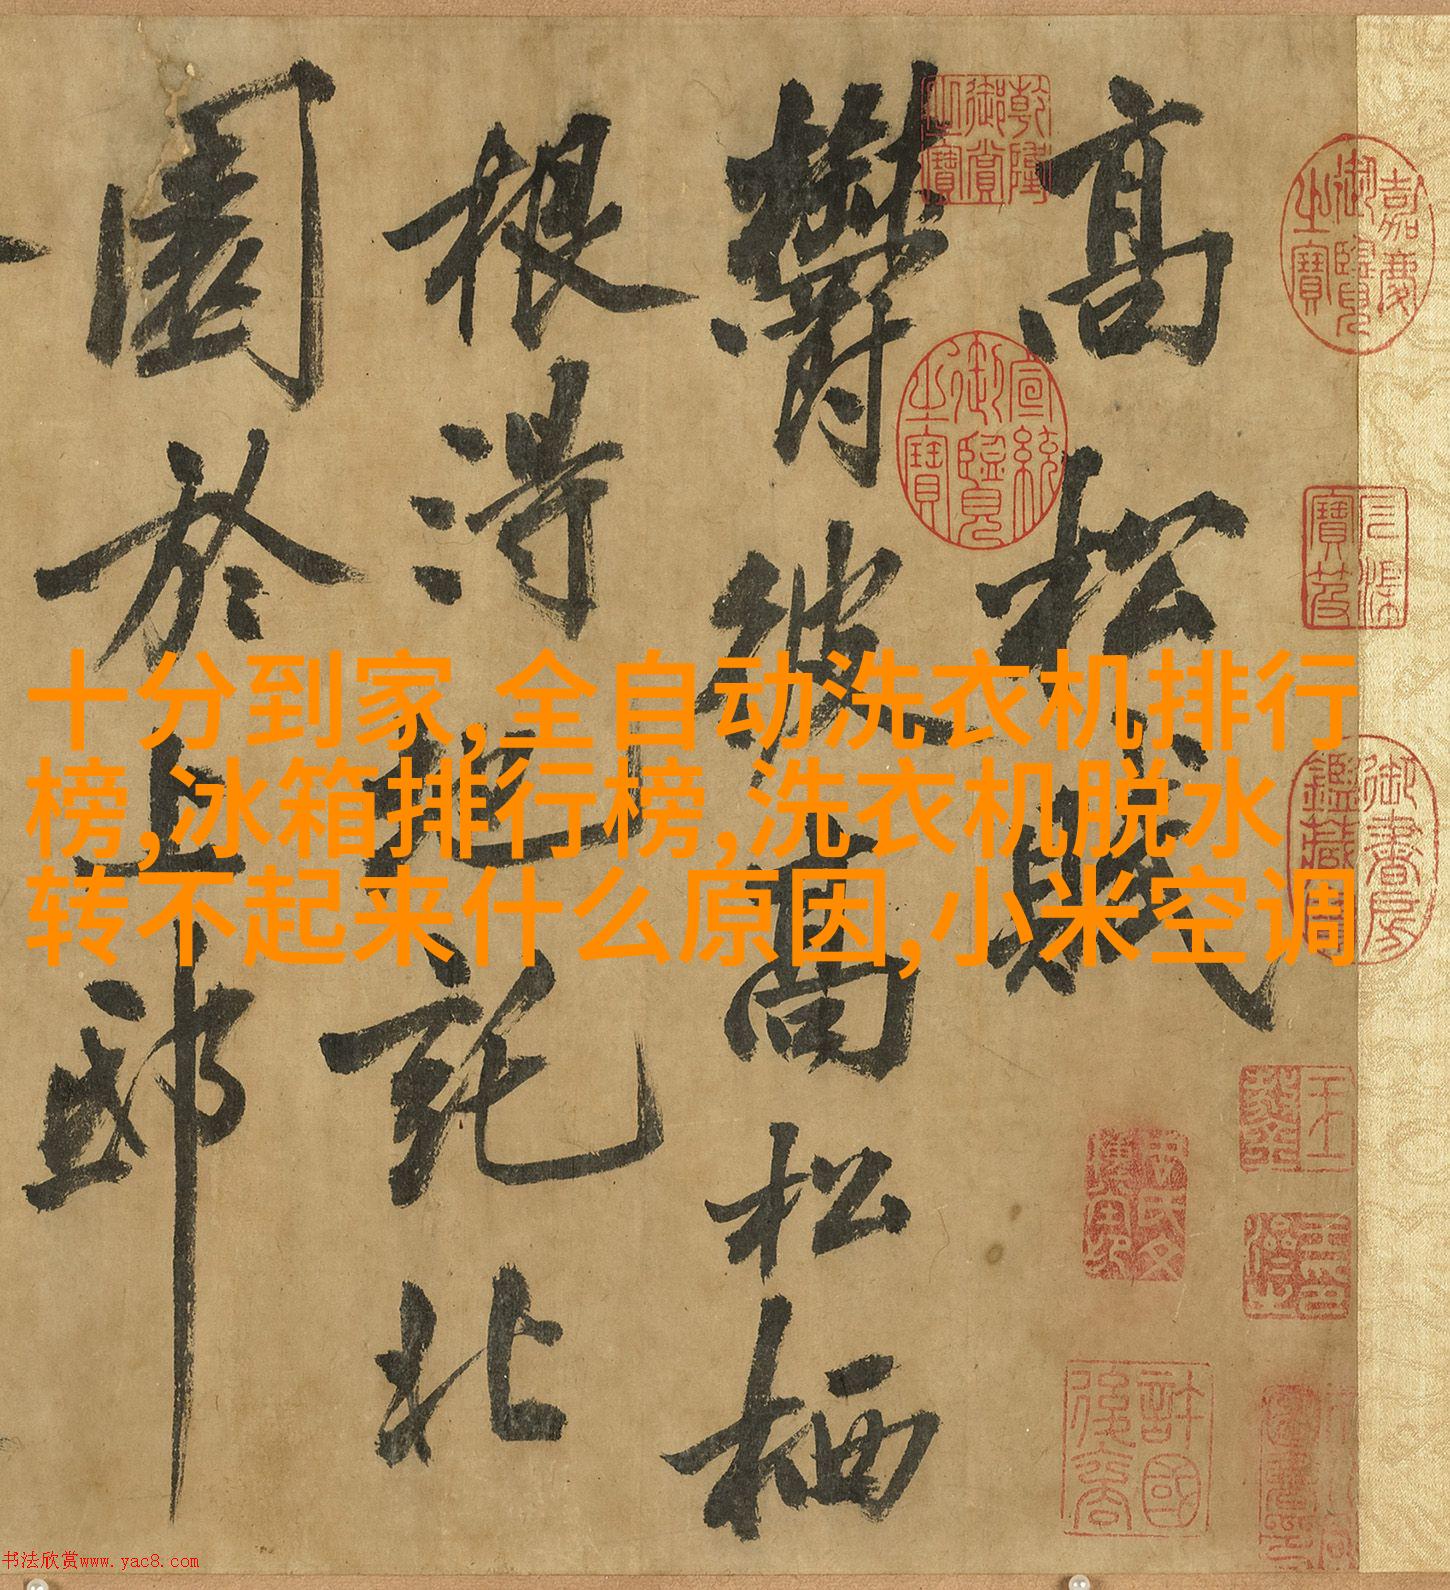 嘉慶御覽之寶
石渠寶笈
御書房鑑藏寶
高松賦
乾隆御賞之寶
宣統御覽之寶
鬱彼高松栖
根得地託北
園於上邸
十分到家,全自动洗衣机排行
榜,冰箱排行榜,洗衣机脱水
转不起来什么原因,小米空调
許國後裔
书法欣赏www.yac8.com